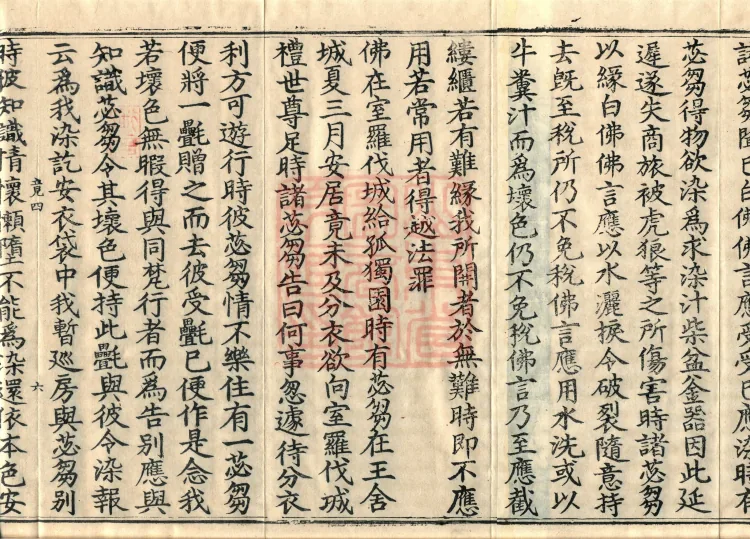 苾芻得物欲染為求染汁柴盆釜器因此延
遲遂失商旅被虎狼等之所傷害時諸苾芻
以緣白佛佛言應以水灑捩令破裂隨意持
去既至稅所仍不免稅佛言應用水洗或以
牛糞汁而為壞色仍不免稅佛言乃至應截
縷繼若有難緣我所開者於無難時即不應
用若常用者得越法罪
佛在室羅伐城給孤獨園時有苾芻在王舍
城夏三月安居竟未及分衣欲向室羅伐城
禮世尊足時諸苾芻告曰何事怱遽待分衣
利方可遊行時彼苾芻情不樂住有一苾芻
便將一疊贈之而去彼受疊已便作是念我
若壞色無暇得與同梵行者而為告別應與
知識苾芻令其壞色便持此疊與彼令染報
云為我染訖安衣袋中我暫巡房與苾芻別
竟四 六
時彼知識情懷嬾墮不能為染還依本色安